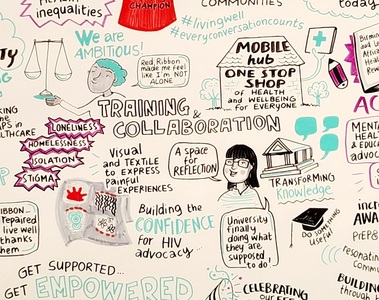 Health
inequalities
CHAMPION
COMMUNITIES
today
#livingwell
#everyconversationcounts
We are
AMBITIOUS!
Red Ribbon
made me feel
like I'm NOT
ALONE
MOBILE
hub
ONE STOP
SHOP
of HEALTH
and WELLBEING
for EVERYONE
TRAINING &
COLLABORATION
LONELINESS
HOMELESSNESS
ISOLATION
STIGMA
Visual
and TEXTILE
to EXPRESS
Painful
EXPERIENCES
A space
for
REFLECTION
TRANSFORMING
Knowledge
MENTAL
HEALTH
& EDUCA
advoc
RIBBON
Repaired
live well
thanks
them
Building the
CONFIDENCE
for HIV
advocacy
University
finally
doing what
they are
supposed
to do!
DO SOMETHING
useful
AWA
PREP &
resonating
Commun
GET SUPPORTED...
GET EMPOWERED
CELEBRATING
BUILDING
through